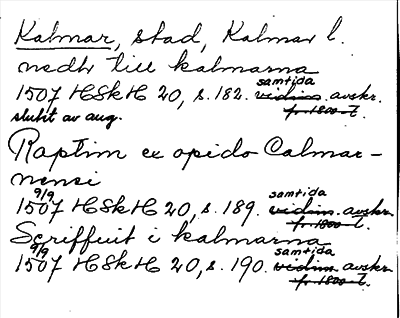 Kalmar, stad, Kalmar l.
nedhr till kalmarna
samtida
1507 HSkH 20, s. 182. vidim. avskr.
slutit av aug. fr. 1800-t.
Raptim ex opido Calmar-
nensi
9/9 samtida
1507 HSkH 20, s. 189. vidim. avskr.
fr. 1800-t.
Scriffuit i kalmarna
9/9 samtida
1507 HSkH 20, s. 190. vidim. avskr.
fr. 1800-t.